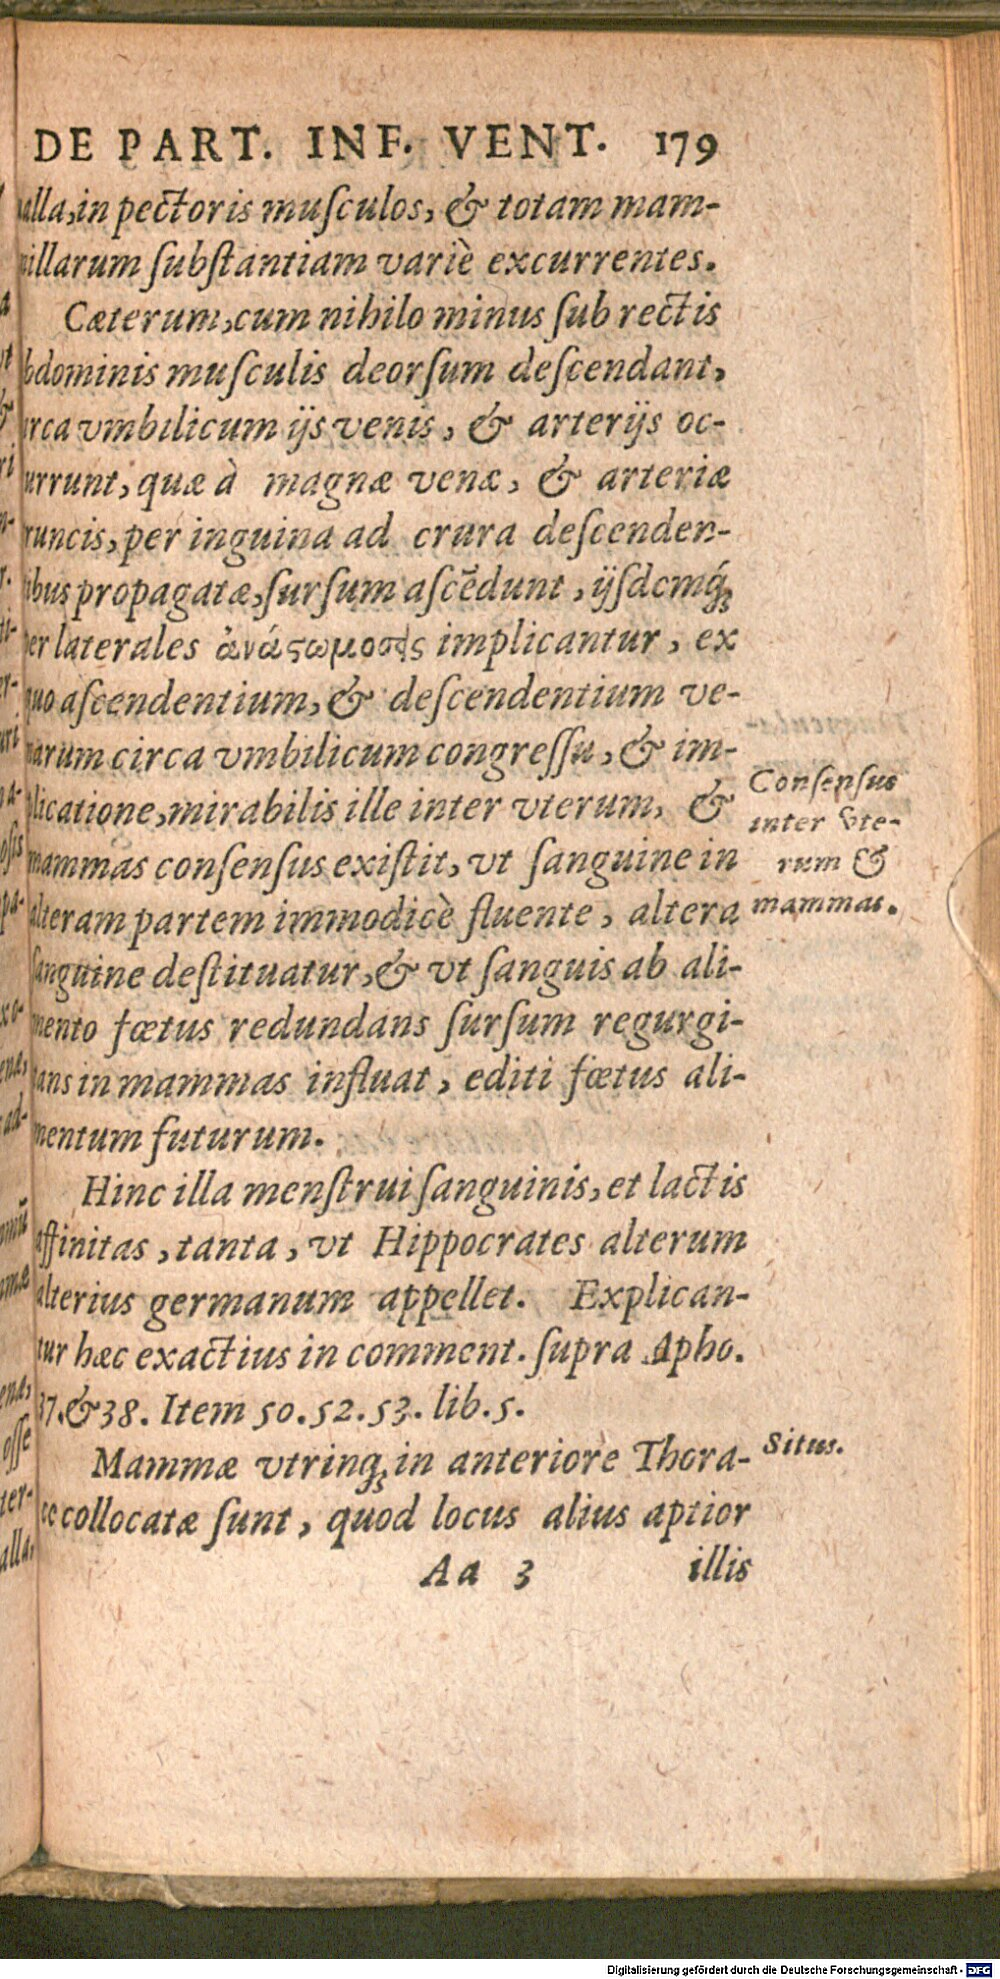 DE PART. INF. VENT. 179
alla, in pectoris muſculos, & totam mam-
illarum ſubſtantiam variè excurrentes.
Cæterum, cum nihilo minus ſub rectis
bdominis muſculis deorſum deſcendant,
irca vmbilicum ijs venis, & arterijs oc-
urrunt, quæ à magnæ venæ, & arteriæ
runcis, per inguina ad crura deſcenden-
ibus propagatæ, ſurſum aſcẽdunt, ijſdemq́;
per laterales ἀνάςωμοσεις implicantur, ex
quo aſcendentium, & deſcendentium ve-
narum circa vmbilicum congreſſu, & im-
plicatione, mirabilis ille inter vterum, &
mammas conſenſus exiſtit, vt ſanguine in
alteram partem immodicè fluente, altera
ſanguine deſtituatur, & vt ſanguis ab ali-
mento fœtus redundans ſurſum regurgi-
tans in mammas influat, editi fœtus ali-
mentum futurum.
Conſenſus
inter vte-
rum &
mammas.
Hinc illa menſtrui ſanguinis, et lactis
affinitas, tanta, vt Hippocrates alterum
alterius germanum appellet. Explican-
tur hæc exactius in comment. ſupra Apho.
37. & 38. Item 50. 52. 53. lib. 5.
Mammæ vtrinq; in anteriore Thora-
ce collocatæ ſunt, quod locus alius aptior
Situs.
Aa 3 illis
Digitalisierung gefördert durch die Deutsche Forschungsgemeinschaft - DFG